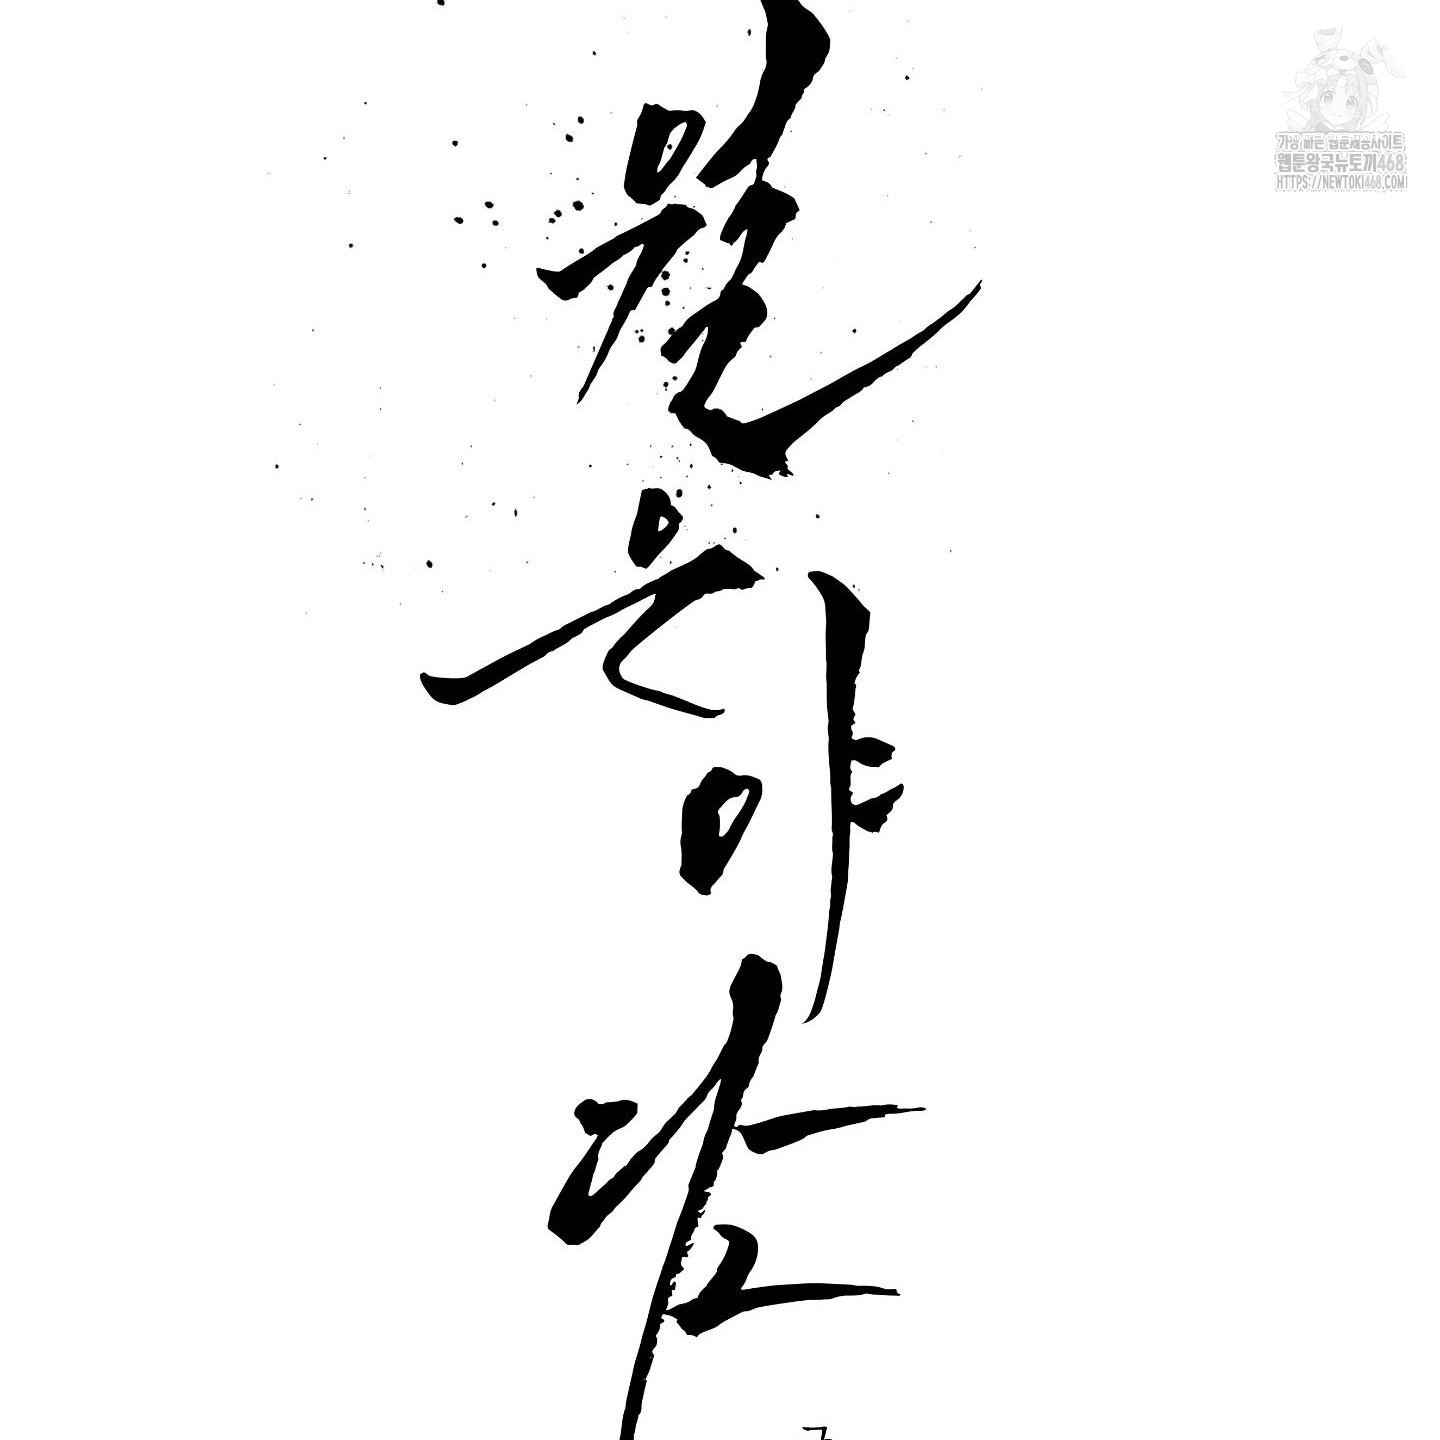 월
은
야
가장 빠른 웹툰제공사이트,
웹툰왕국뉴토끼468
HTTPS://NEWTOKI468.COM